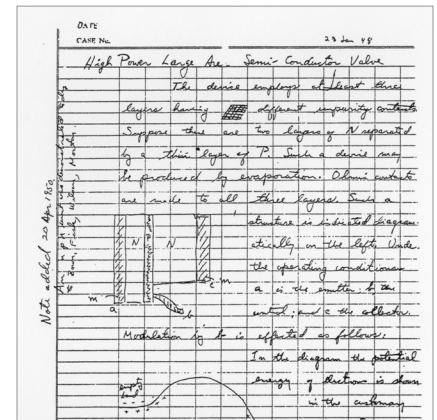 DATE
CASE No.
23 Jan 48
High Power Large Area Semi-Conductor Valve
The device employs at least three
layers having different impurity contents.
Suppose there are two layers of N separated
by a thin layer of P. Such a device may
be produced by evaporation. Ohmic contacts
are made to all three layers. Such a
structure is indicated diagram-
atically on the left. Under
the operating conditions
a is the emitter, b the
control, and c the collector.
Modulation by b is effected as follows:
In the diagram the potential
energy of electrons is shown
in the customary
N
N
m
a
b
c
m
Note added 20 Apr 1950
An n p n unit was demonstrated